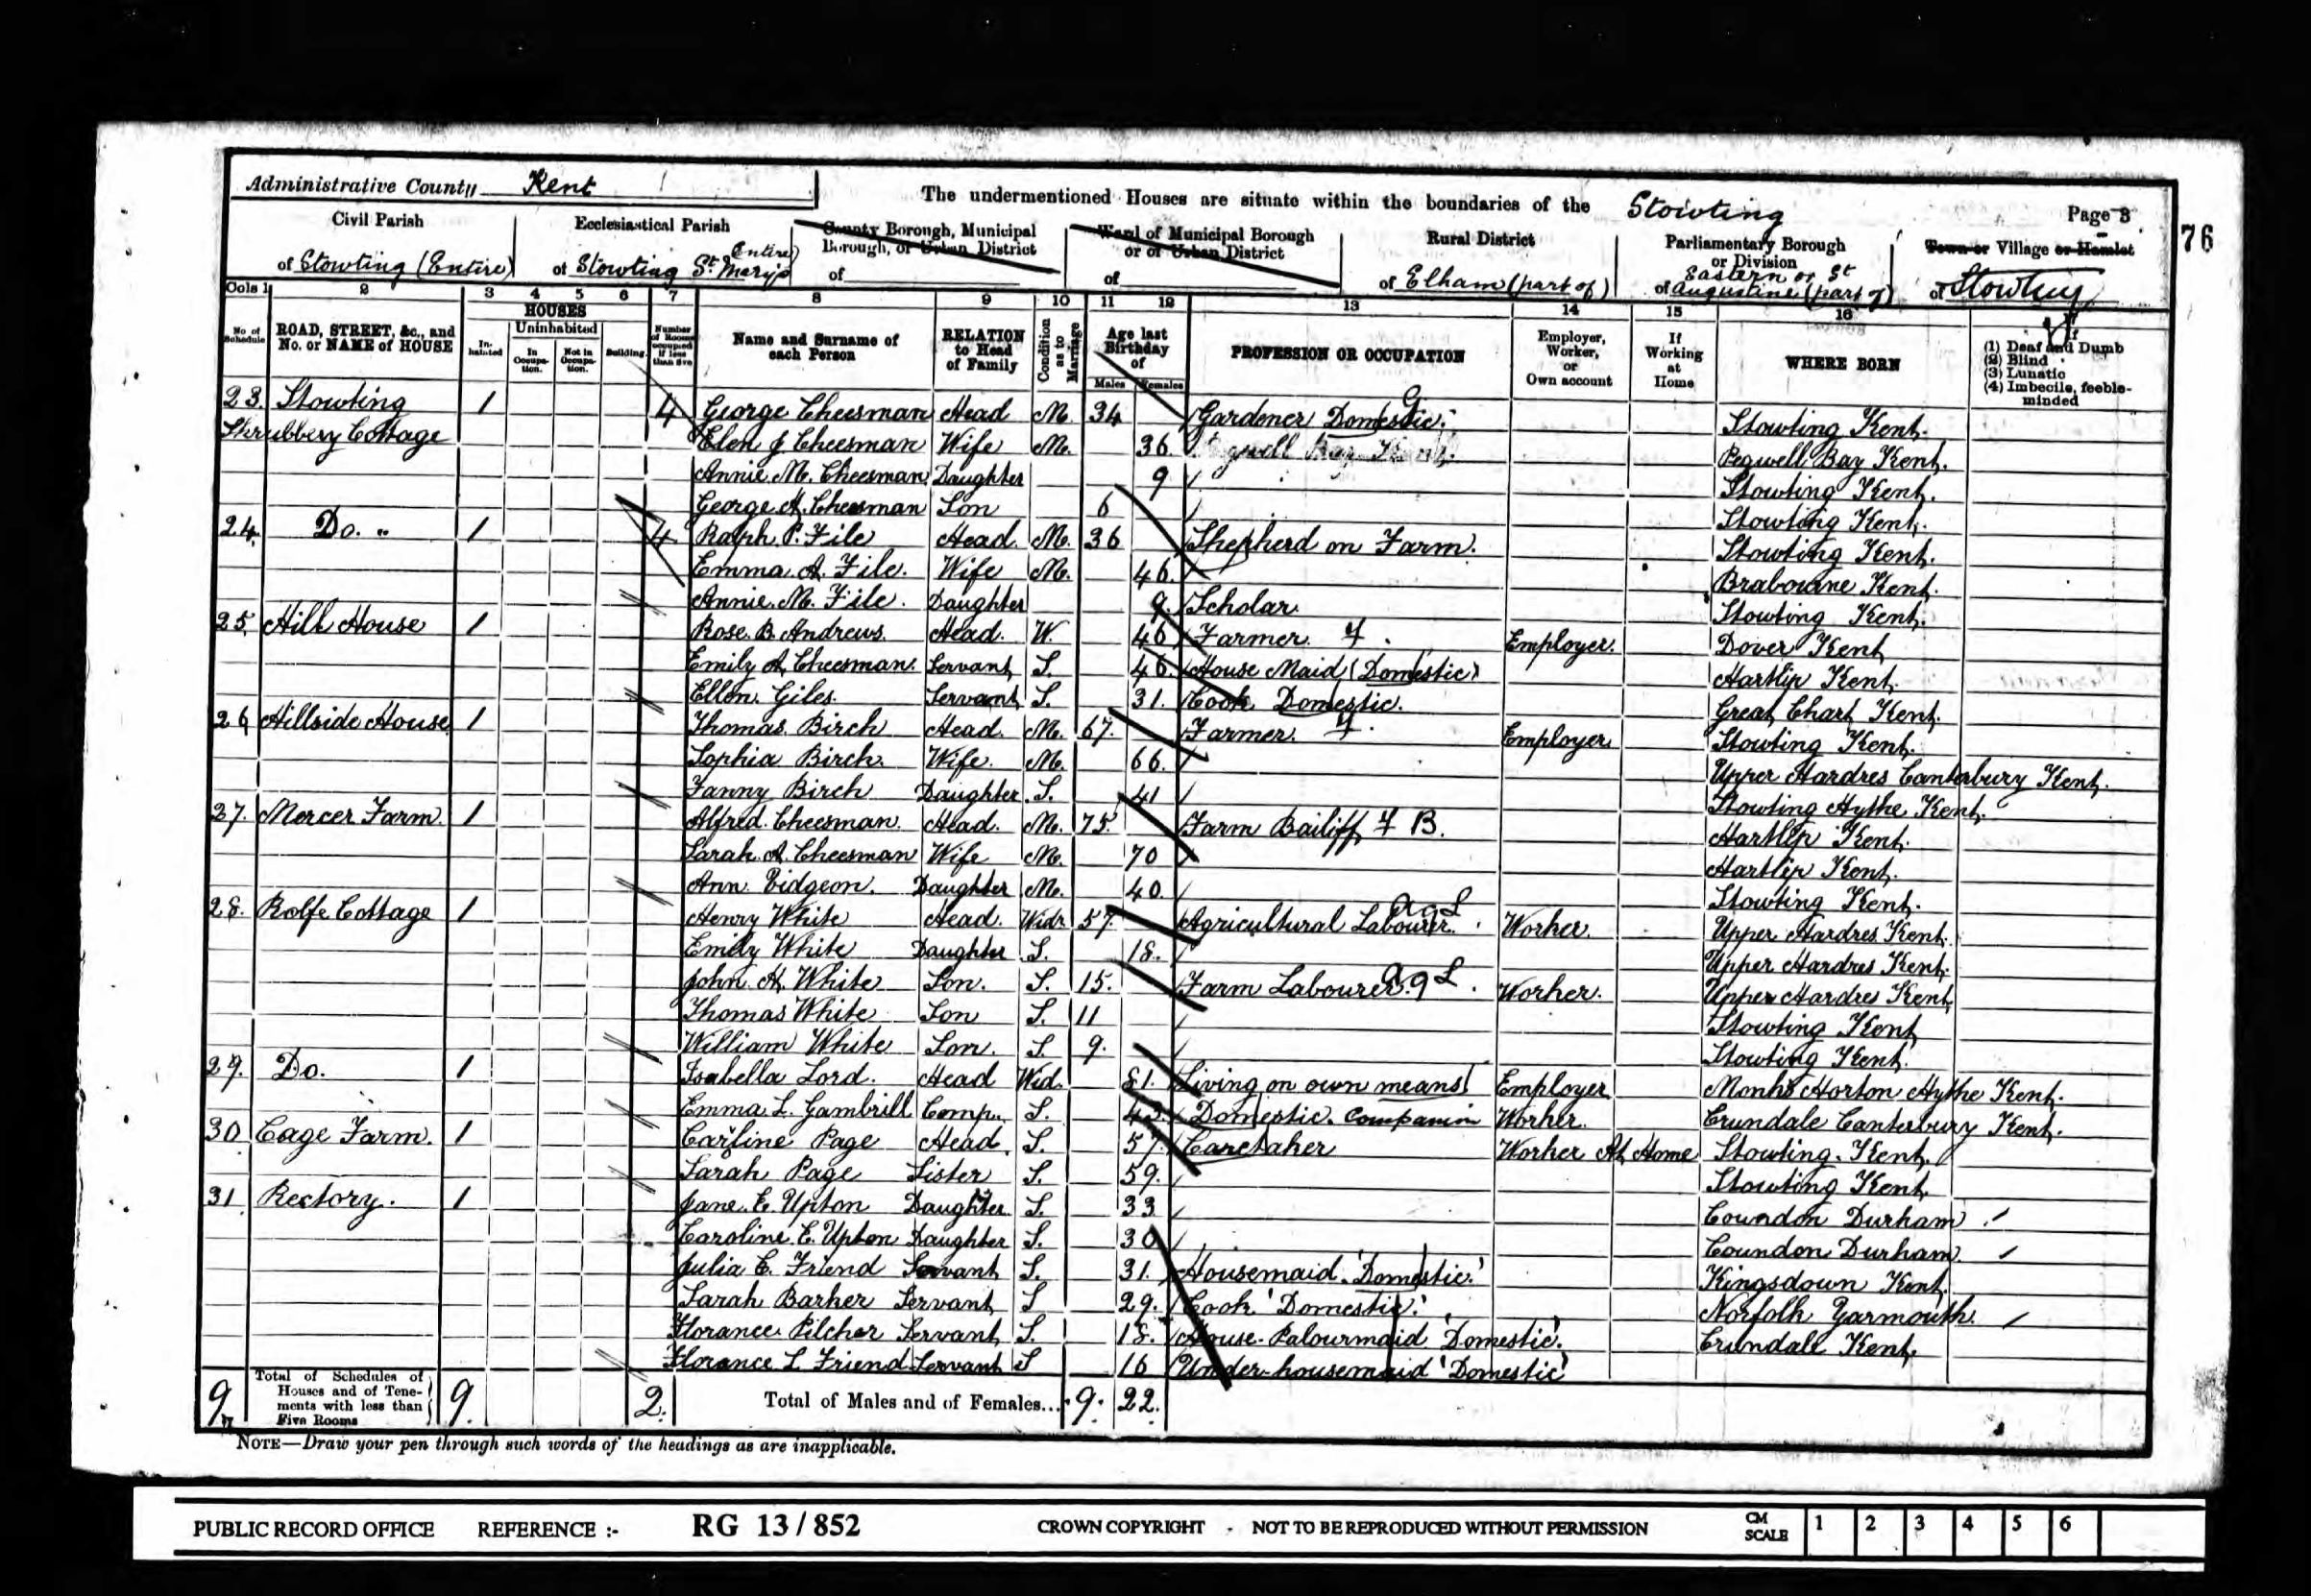 Administrative County Kent
The undermentioned Houses are situate within the boundaries of the Stowting
Page 8
76
Civil Parish
of Stowting (Entire)
Ecclesiastical Parish
of Stowting St. Mary's (Entire)
County Borough, Municipal Borough, or Urban District
of
Ward of Municipal Borough or of Urban District
of
Rural District
of Elham (part of)
Parliamentary Borough or Division
of Eastern or St Augustine (part of)
Town or Village or Hamlet
of Stowting
Cols 1 2 3 4 5 6 7 8 9 10 11 12 13 14 15 16
No. of Schedule
ROAD, STREET, &c., and No. or NAME of HOUSE
HOUSES
Inhabited
Uninhabited
In Occupation.
Not in Occupation.
Building.
Number of Rooms occupied if less than five
Name and Surname of each Person
RELATION to Head of Family
Condition as to Marriage
Age last Birthday of
Males Females
PROFESSION OR OCCUPATION
Employer, Worker, or Own account
If Working at Home
WHERE BORN
If
(1) Deaf and Dumb
(2) Blind
(3) Lunatic
(4) Imbecile, feeble-minded
23. Stowting 1 4 George Cheesman Head M. 34 Gardener Domestic. G Stowting Kent.
Shrubbery Cottage Elen J Cheesman Wife M. 36. Pegwell Bay Kent.
Annie. M. Cheesman Daughter 9 Stowting Kent.
George A. Cheesman Son 6 Stowting Kent.
24. Do. " 1 4 Ralph. P. File Head. M. 36 Shepherd on Farm. Stowting Kent.
Emma. A. File. Wife M. 46. Brabourne Kent.
Annie. M. File. Daughter 9. Scholar. Stowting Kent.
25. Hill House 1 Rose. B. Andrews. Head. W. 46 Farmer. F. Employer. Dover Kent
Emily A. Cheesman. Servant S. 46. House Maid (Domestic) Hartlip Kent.
Ellen. Giles. Servant S. 31. Cook Domestic. Great Chart Kent.
26 Hillside House 1 Thomas. Birch Head. M. 67. Farmer. F. Employer. Stowting Kent.
Sophia Birch. Wife. M. 66. Upper Hardres Canterbury Kent.
Fanny Birch Daughter. S. 41 Stowting Hythe Kent.
27. Mercer Farm. 1 Alfred. Cheesman. Head. M. 75. Farm Bailiff F B. Hartlip Kent.
Sarah. A. Cheesman Wife M. 70 Hartlip Kent.
Ann. Pidgeon. Daughter M. 40. Stowting Kent.
28. Rolfe Cottage 1 Henry White Head. Widr. 57. Agricultural Labourer. Ag L Worker. Upper Hardres Kent.
Emily White Daughter S. 18. Upper Hardres Kent.
John. H. White Son. S. 15. Farm Labourer. Ag L. Worker. Upper Hardres Kent.
Thomas White Son S. 11 Stowting Kent
William White Son. S. 9. Stowting Kent.
29. Do. 1 Isabella Lord. Head Wid. 81. Living on own means Employer Monks Horton Hythe Kent.
Emma. L. Gambrill Comp. S. 43. Domestic. Companion Worker. Crundale Canterbury Kent.
30 Cage Farm. 1 Caroline Page Head. S. 57. Caretaker Worker At Home Stowting. Kent.
Sarah Page Sister S. 59. Stowting Kent.
31 Rectory. 1 Jane. E. Upton Daughter. S. 33 Coundon Durham
Caroline. E. Upton Daughter S. 30 Coundon Durham.
Julia E. Friend Servant S. 31. Housemaid. 'Domestic.' Kingsdown Kent.
Sarah Barker Servant S 29. Cook 'Domestic.' Norfolk Yarmouth.
Florance. Pilcher Servant S. 18. House-Palourmaid 'Domestic. Crundall Kent.
Florance L. Friend Servant S 16 Under-housemaid 'Domestic'
9 Total of Schedules of Houses and of Tenements with less than Five Rooms 9. 2. Total of Males and of Females... 9. 22.
NOTE—Draw your pen through such words of the headings as are inapplicable.
PUBLIC RECORD OFFICE REFERENCE :- RG 13 / 852 CROWN COPYRIGHT - NOT TO BE REPRODUCED WITHOUT PERMISSION CM SCALE 1 2 3 4 5 6